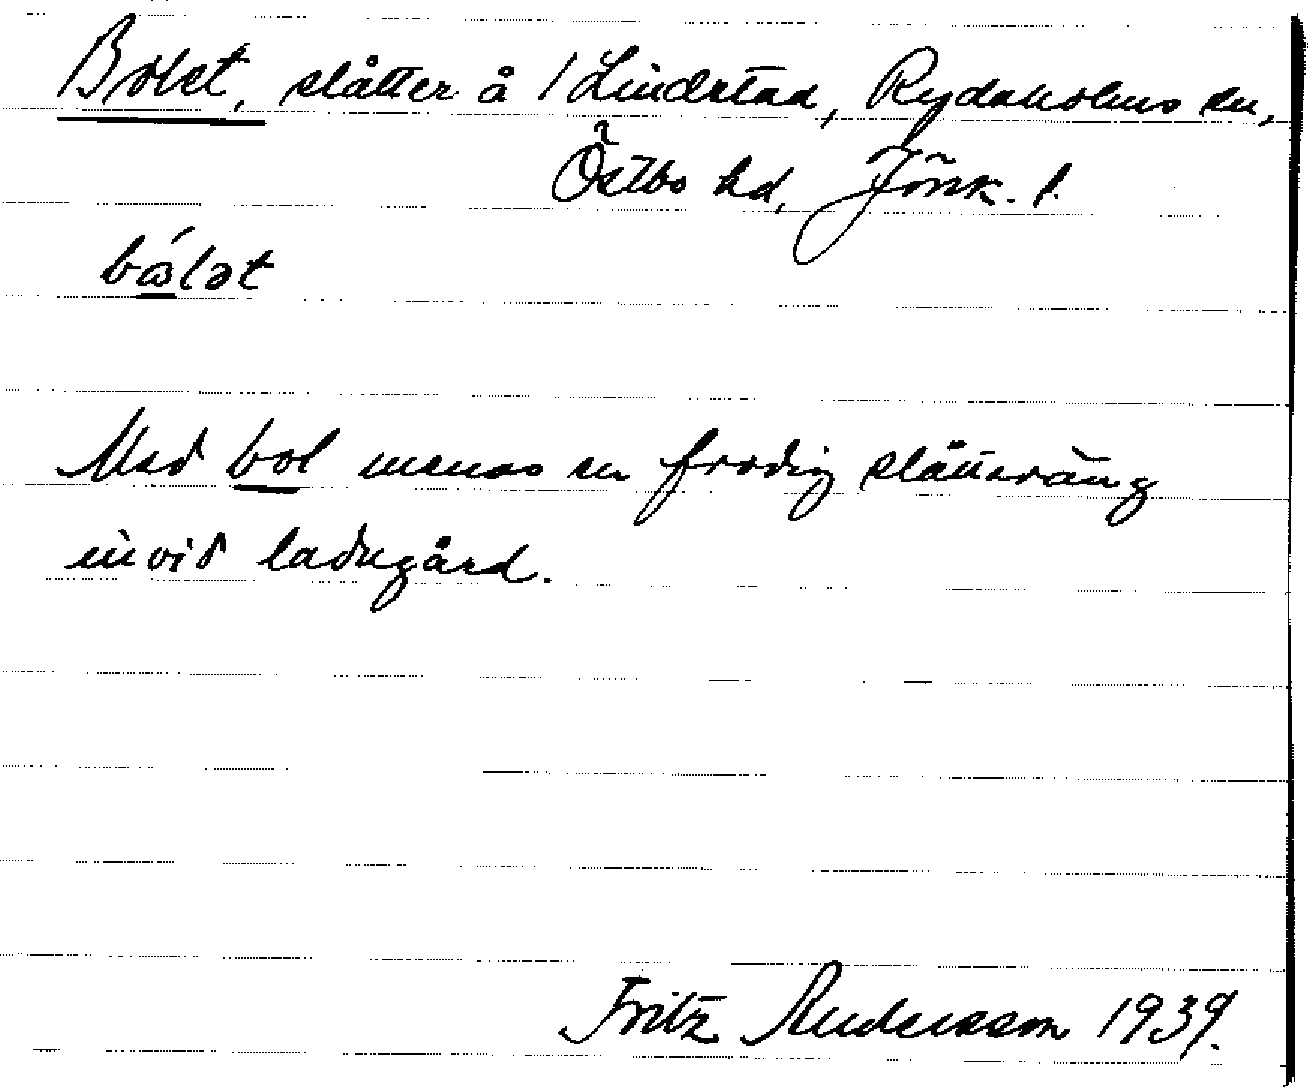 Bolet, slåtter å 1 Lindstad, Rydaholms sn,
Östbo hd, Jönk. l.
Med bol menas en frodig slåtteräng
invid ladugård.
Fritz Andersson 1939.